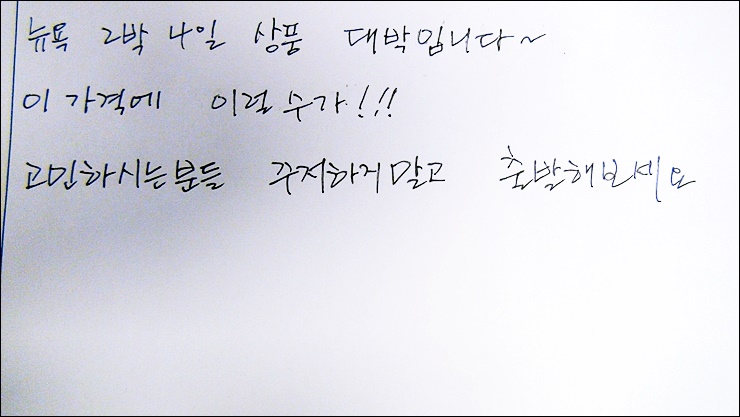 뉴욕 2박 4일 상품 대박입니다~
이 가격에 이럴수가!!!
고민하시는분들 주저하게말고 출발해보세요